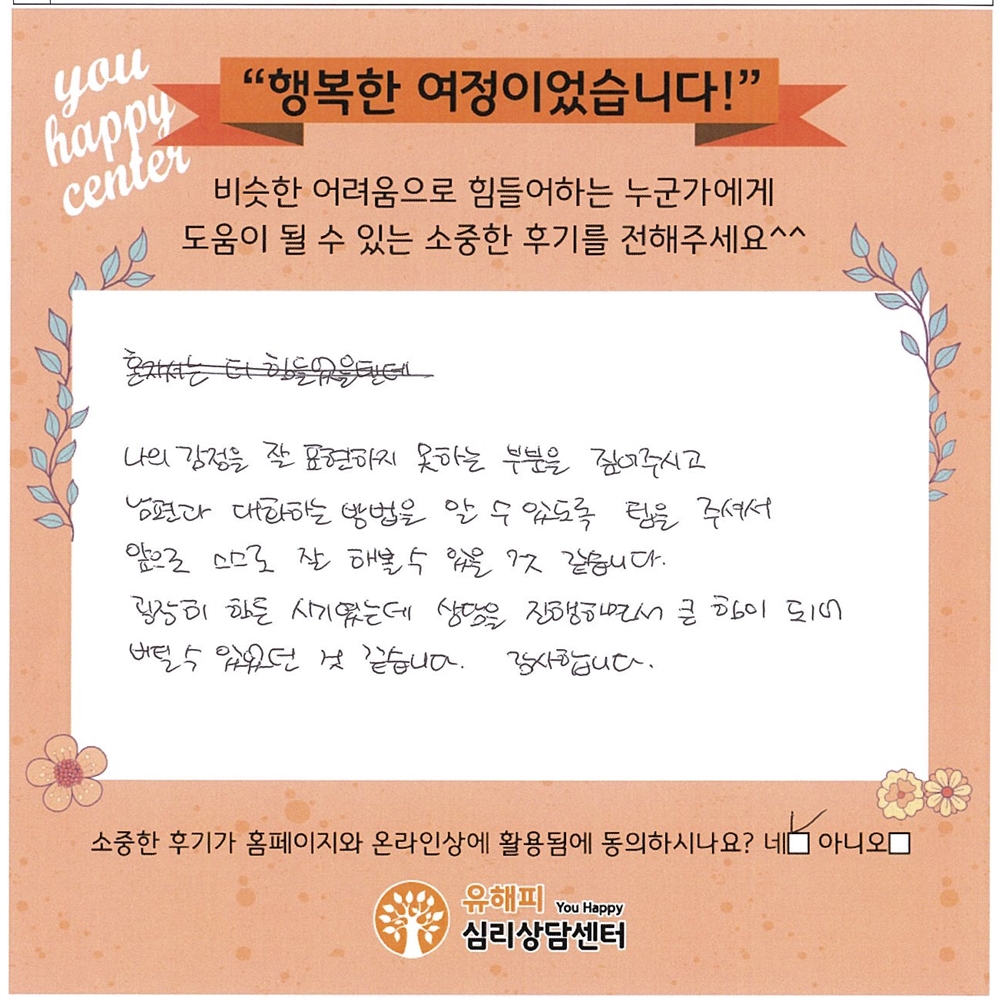 you
happy
center
“행복한 여정이었습니다!”
비슷한 어려움으로 힘들어하는 누군가에게
도움이 될 수 있는 소중한 후기를 전해주세요^^
혼자서는 더 힘들었을텐데
나의 감정을 잘 표현하지 못하는 부분을 짚어주시고
남편과 대화하는 방법을 알 수 있도록 팁을 주셔서
앞으로 스스로 잘 해볼 수 있을 것 같습니다.
굉장히 힘든 시기였는데 상담을 진행하면서 큰 힘이 되어
버틸 수 있었던 것 같습니다. 감사합니다.
소중한 후기가 홈페이지와 온라인상에 활용됨에 동의하시나요? 네 아니오
유해피 You Happy
심리상담센터